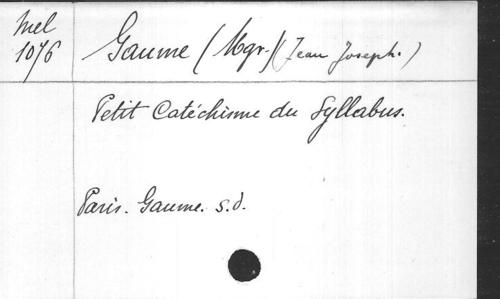 Mel
1076
Gaume (Mgr.) (Jean Joseph.)
Petit Catéchisme du Syllabus.
Paris. Gaume. s.d.